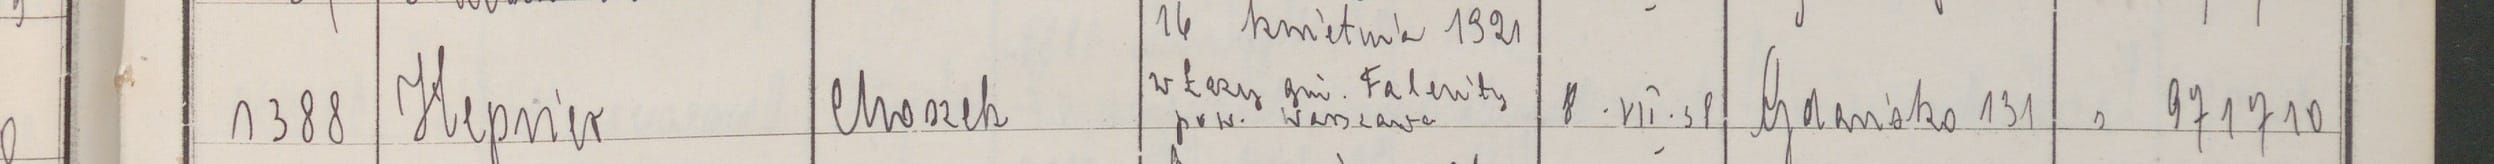 16 kwietnia 1921
1388 Hepner Moszek w Łazy gm. Falenity 8.VII.38 Gdańska 131 " 971710
pow. Warszawa